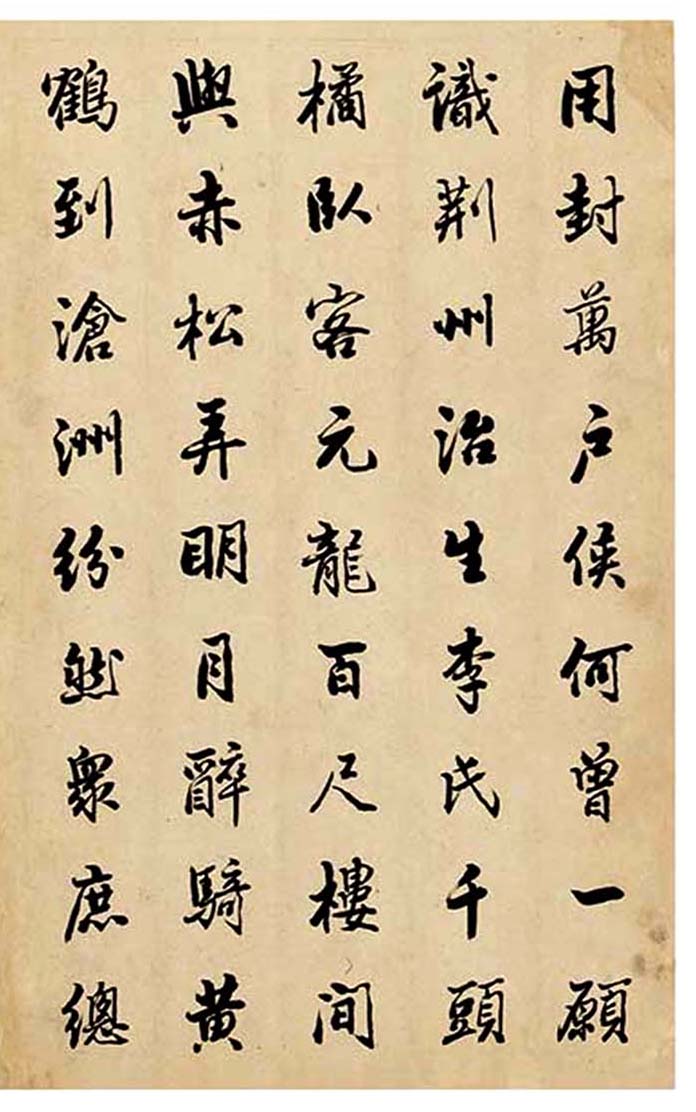 用封萬户侯何曾一願
識荆州治生李氏千頭
橘臥客元龍百尺樓間
與赤松弄明月醉騎黄
鶴到滄洲紛然衆庶總